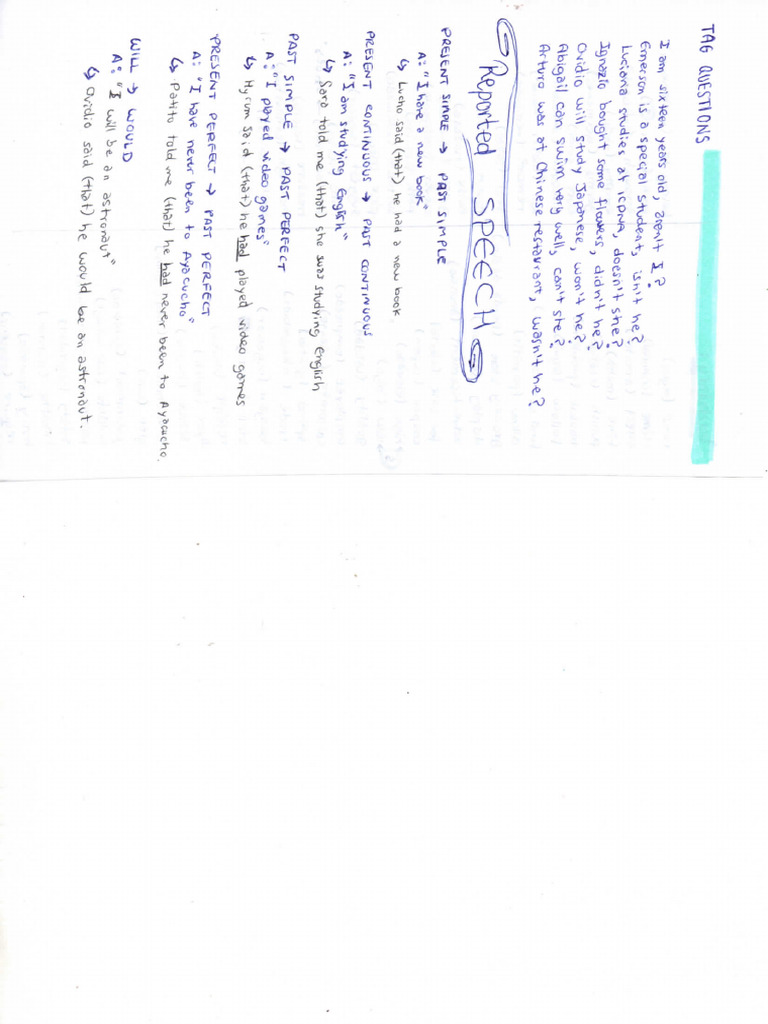 TAG QUESTIONS
I am sixteen years old, aren't I?
Emerson is a special student, isn't he?
Luciana studies at icpna, doesn't she?
Ignazio bought some flowers, didn't he?
Ovidio will study Japanese, won't he?
Abigail can swim very well, can't she?
Arturo was at Chinese restaurant, wasn't he?
Reported SPEECH
PRESENT SIMPLE → PAST SIMPLE
A: "I have a new book"
↳ Lucho said (that) he had a new book
PRESENT CONTINUOUS → PAST CONTINUOUS
A: "I am studying English"
↳ Sara told me (that) she was studying English
PAST SIMPLE → PAST PERFECT
A: "I played video games"
↳ Hyrum said (that) he had played video games
PRESENT PERFECT → PAST PERFECT
A: "I have never been to Ayacucho"
↳ Patito told me (that) he had never been to Ayacucho.
WILL → WOULD
A: "I will be an astronaut"
↳ Ovidio said (that) he would be an astronaut.